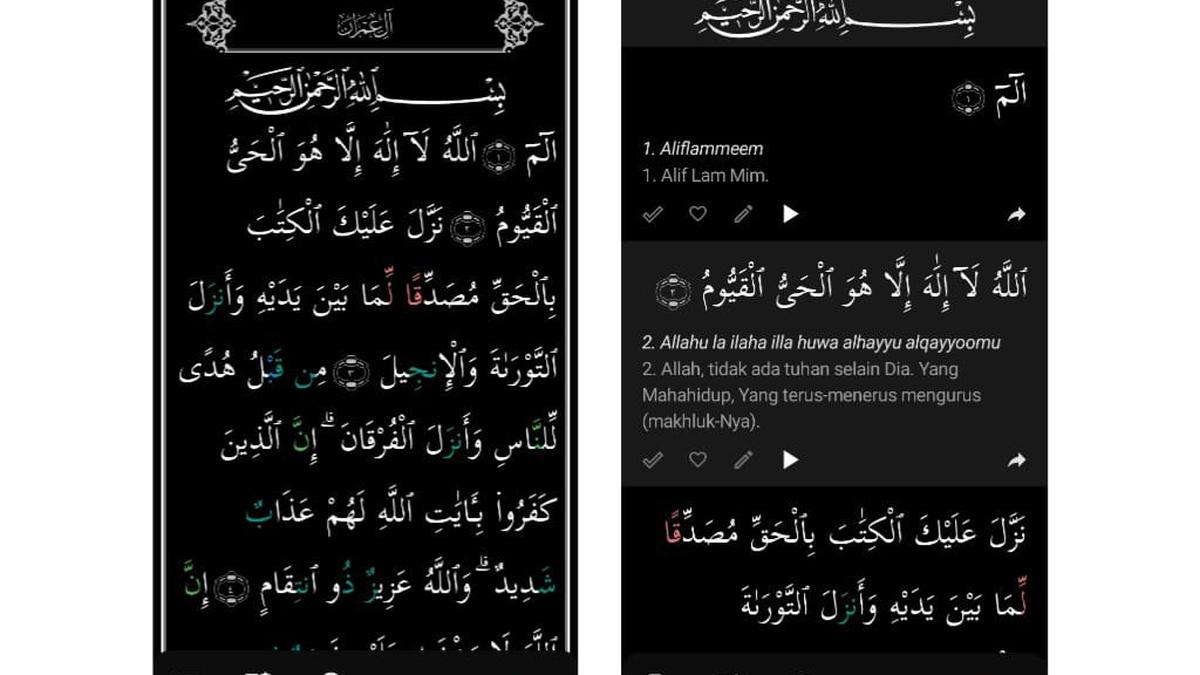 آل عمران
بِسْمِ ٱللَّهِ ٱلرَّحْمَٰنِ ٱلرَّحِيمِ
الٓمٓ ١ ٱللَّهُ لَآ إِلَٰهَ إِلَّا هُوَ ٱلْحَىُّ
ٱلْقَيُّومُ ٢ نَزَّلَ عَلَيْكَ ٱلْكِتَٰبَ
بِٱلْحَقِّ مُصَدِّقًا لِّمَا بَيْنَ يَدَيْهِ وَأَنزَلَ
ٱلتَّوْرَىٰةَ وَٱلْإِنجِيلَ ٣ مِن قَبْلُ هُدًى
لِّلنَّاسِ وَأَنزَلَ ٱلْفُرْقَانَ ۗ إِنَّ ٱلَّذِينَ
كَفَرُوا۟ بِـَٔايَٰتِ ٱللَّهِ لَهُمْ عَذَابٌ
شَدِيدٌ ۗ وَٱللَّهُ عَزِيزٌ ذُو ٱنتِقَامٍ ٤ إِنَّ
بِسْمِ ٱللَّهِ ٱلرَّحْمَٰنِ ٱلرَّحِيمِ
الٓمٓ ١
1. Aliflammeem
1. Alif Lam Mim.
ٱللَّهُ لَآ إِلَٰهَ إِلَّا هُوَ ٱلْحَىُّ ٱلْقَيُّومُ ٢
2. Allahu la ilaha illa huwa alhayyu alqayyoomu
2. Allah, tidak ada tuhan selain Dia. Yang
Mahahidup, Yang terus-menerus mengurus
(makhluk-Nya).
نَزَّلَ عَلَيْكَ ٱلْكِتَٰبَ بِٱلْحَقِّ مُصَدِّقًا
لِّمَا بَيْنَ يَدَيْهِ وَأَنزَلَ ٱلتَّوْرَىٰةَ